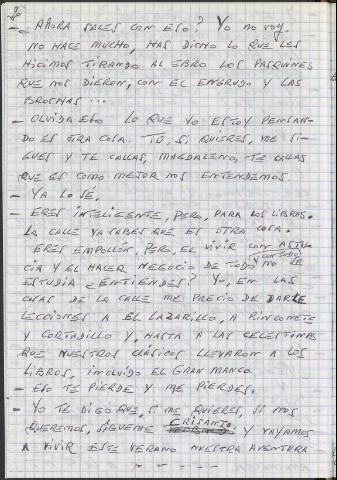 - ¿AHORA SALES CON ESO? YO NO VOY.
NO HACE MUCHO, HAS DICHO LO QUE LES
HICIMOS TIRANDO AL EBRO LOS PASQUINES
QUE NOS DIERON, CON EL ENGRUDO Y LAS
BROCHAS...
- OLVIDA ESO LO QUE YO ESTOY PENSAN-
DO ES OTRA COSA. TÚ, SI QUIERES, ME SI-
GUES Y TE CALLAS, MAGDALENO, TE CALLAS
QUE ES COMO MEJOR NOS ENTENDEMOS.
- YA LO SÉ.
- ERES INTELIGENTE, PERO, PARA LOS LIBROS.
LA CALLE YA SABES QUE ES OTRA COSA.
ERES EMPOLLÓN, PERO, EL VIVIR CON ASTU-
CIA Y EL HACER NEGOCIO DE TODO Y CON TODO NO SE
ESTUDIA ¿ENTIENDES? YO, EN LAS
COSAS DE LA CALLE ME PRECIO DE DARLE
LECCIONES A EL LAZARILLO, A RINCONETE
Y CORTADILLO Y, HASTA A LAS CELESTINAS
QUE NUESTROS CLÁSICOS LLEVARON A LOS
LIBROS, INCLUIDO EL GRAN MANCO.
- ESO TE PIERDE Y ME PIERDES.
- YO TE DIGO QUE, SI ME QUIERES, SI NOS
QUEREMOS, SÍGUEME CRISANTO. Y VAYAMOS
A VIVIR ESTE VERANO NUESTRA AVENTURA
- - - - - -